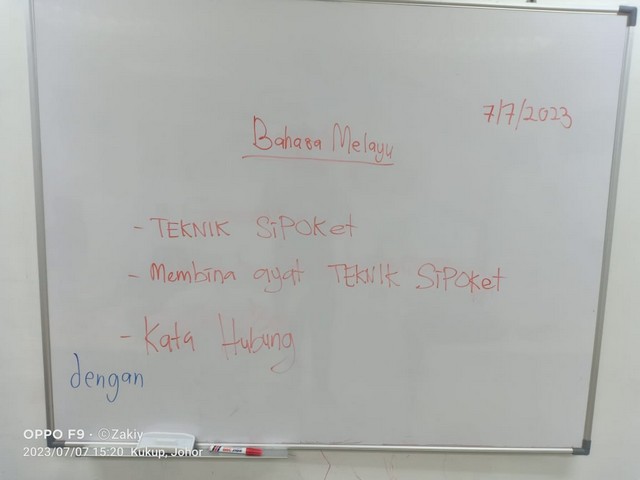 7/7/2023
Bahasa Melayu
- TEKNIK SiPOKet
- Membina ayat TEKNIK SiPOKet
- Kata Hubung
dengan
OPPO F9 · ©Zakiy
2023/07/07 15:20 Kukup, Johor